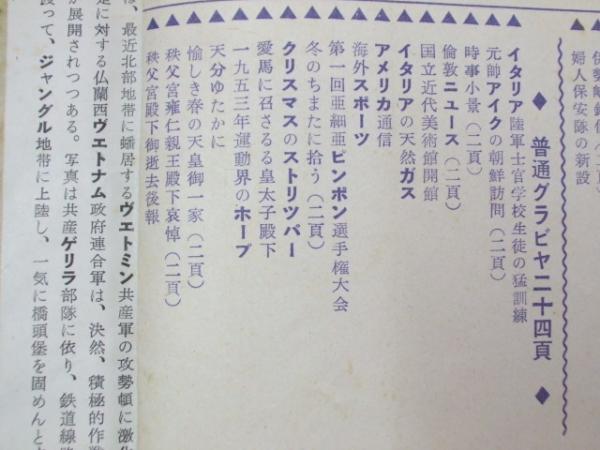 婦人保安隊の新設
◆ 普通グラビヤ二十四頁 ◆
イタリア陸軍士官学校生徒の猛訓練
元帥アイクの朝鮮訪問（二頁）
時事小景（二頁）
倫敦ニュース（二頁）
国立近代美術館開館
イタリアの天然ガス
アメリカ通信
海外スポーツ
第一回亜細亜ピンポン選手権大会
冬のちまたに拾う（二頁）
クリスマスのストリツパー
愛馬に召さるる皇太子殿下
一九五三年運動界のホープ
天分ゆたかに
愉しき春の天皇御一家（二頁）
秩父宮雍仁親王殿下哀悼（二頁）
秩父宮殿下御逝去後報
は、最近北部地帯に蟠居するヴェトミン共産軍の攻勢頓に激化
に対する仏蘭西ヴェトナム政府連合軍は、決然、積極的作戦
が展開されつつある。写真は共産ゲリラ部隊に依り、鉄道線路
って、ジャングル地帯に上陸し、一気に橋頭堡を固めんと